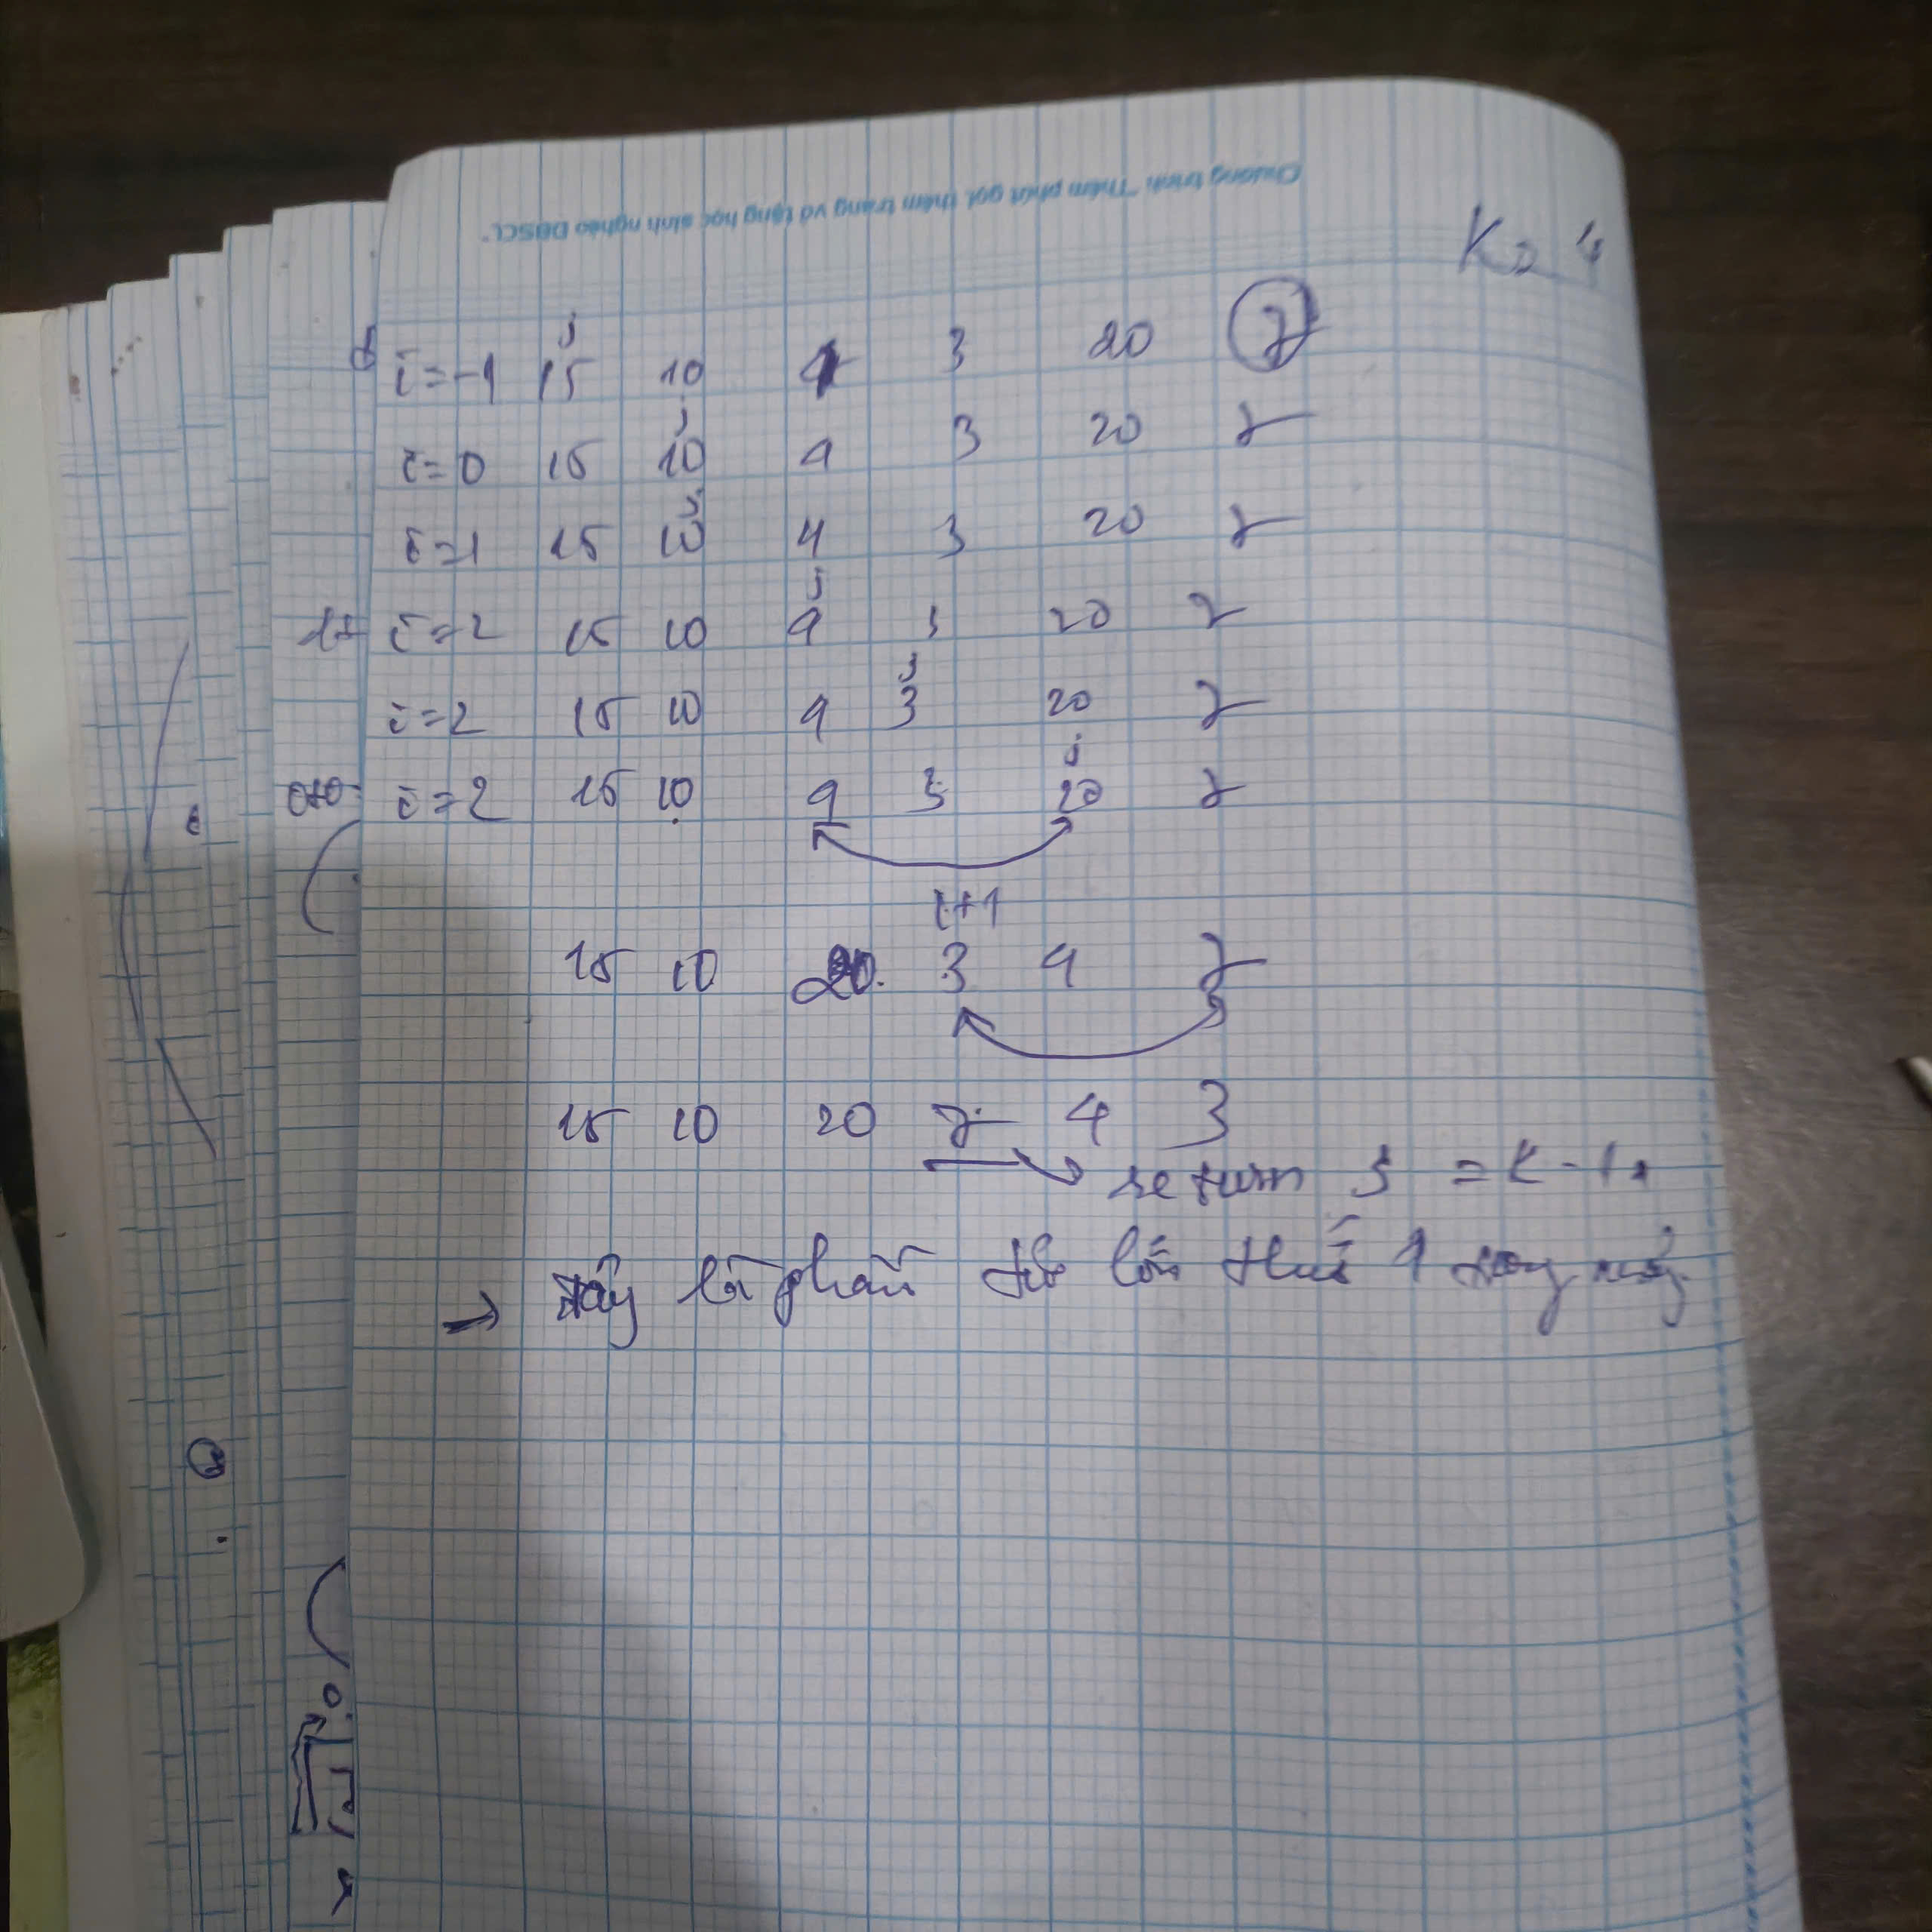 Chương trình "Thêm phút gọi, thêm trang vở tặng học sinh nghèo ĐBSCL"
K = 4
j
i = -1 15 10 4 3 20 7
j
i = 0 15 10 4 3 20 7
j
i = 1 15 10 4 3 20 7
j
i = 2 15 10 4 3 20 7
j
i = 2 15 10 4 3 20 7
j
i = 2 15 10 4 3 20 7
i+1
15 10 20 3 4 7
15 10 20 7 4 3
return 3 = K - 1
→ Đây là phần tử lớn thứ 4 trong mảng